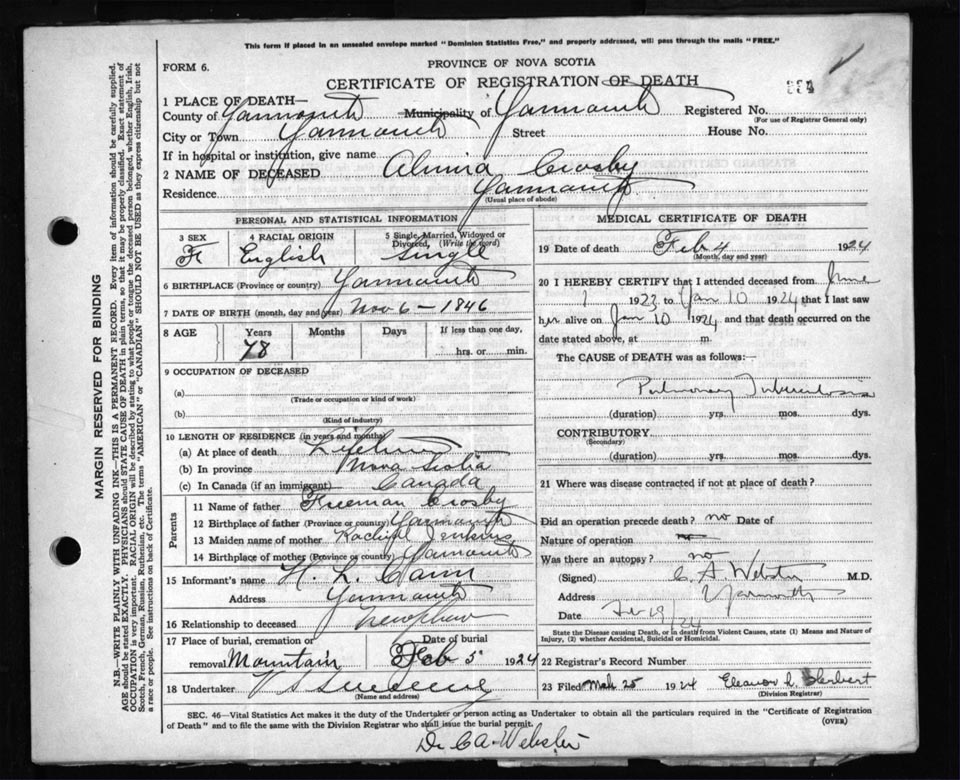 This form if placed in an unsealed envelope marked "Dominion Statistics Free," and properly addressed, will pass through the mails "FREE."
FORM 6.
PROVINCE OF NOVA SCOTIA
CERTIFICATE OF REGISTRATION OF DEATH
334
1 PLACE OF DEATH—
County of Yarmouth Municipality of Yarmouth Registered No.
(For use of Registrar General only)
City or Town Yarmouth Street House No.
If in hospital or institution, give name
2 NAME OF DECEASED Almira Crosby
Residence Yarmouth
(Usual place of abode)
PERSONAL AND STATISTICAL INFORMATION
3 SEX F
4 RACIAL ORIGIN English
5 Single, Married, Widowed or Divorced, (Write the word) Single
6 BIRTHPLACE (Province or country) Yarmouth
7 DATE OF BIRTH (month, day and year) Nov 6 - 1846
8 AGE Years Months Days If less than one day,
78 hrs. or min.
9 OCCUPATION OF DECEASED
(a)
(Trade or occupation or kind of work)
(b)
(Kind of industry)
10 LENGTH OF RESIDENCE (in years and months)
(a) At place of death Lifetime
(b) In province Nova Scotia
(c) In Canada (if an immigrant) Canada
Parents
11 Name of father Freeman Crosby
12 Birthplace of father (Province or country) Yarmouth
13 Maiden name of mother Rachel Jenkins
14 Birthplace of mother (Province or country) Yarmouth
15 Informant's name H. L. Cann
Address Yarmouth
16 Relationship to deceased Nephew
17 Place of burial, cremation or removal Mountain
Date of burial Feb 5 1924
18 Undertaker
(Name and address)
MEDICAL CERTIFICATE OF DEATH
19 Date of death Feb 4 1924
(Month, day and year)
20 I HEREBY CERTIFY that I attended deceased from June
1 1923 to Jan 10 1924 that I last saw
her alive on Jan 10 1924 and that death occurred on the
date stated above, at m.
The CAUSE of DEATH was as follows:—
Pulmonary Tuberculosis
(duration) yrs. mos. dys.
CONTRIBUTORY
(Secondary)
(duration) yrs. mos. dys.
21 Where was disease contracted if not at place of death?
Did an operation precede death? no Date of
Nature of operation
Was there an autopsy? no
(Signed) C. A. Webster M.D.
Address Yarmouth
Date Feb 19/24
State the Disease causing Death, or in death from Violent Causes, state (1) Means and Nature of
Injury, (2) whether Accidental, Suicidal or Homicidal.
22 Registrar's Record Number
23 Filed Mch 25 1924 Eleanor L. Herbert
(Division Registrar)
SEC. 46—Vital Statistics Act makes it the duty of the Undertaker or person acting as Undertaker to obtain all the particulars required in the "Certificate of Registration
of Death" and to file the same with the Division Registrar who shall issue the burial permit.
(OVER)
Dr C A. Webster
MARGIN RESERVED FOR BINDING
N.B.—WRITE PLAINLY WITH UNFADING INK—THIS IS A PERMANENT RECORD. Every item of information should be carefully supplied.
AGE should be stated EXACTLY. PHYSICIANS should STATE CAUSE OF DEATH in plain terms, so that it may be properly classified. Exact statement of
OCCUPATION is very important. RACIAL ORIGIN will be described by stating to what people or tongue the deceased person belonged, whether English, Irish,
Scotch, French, German, Russian, Ruthenian, etc. The terms "AMERICAN" or "CANADIAN" SHOULD NOT BE USED as they express citizenship but not
a race or people. See instructions on back of Certificate.